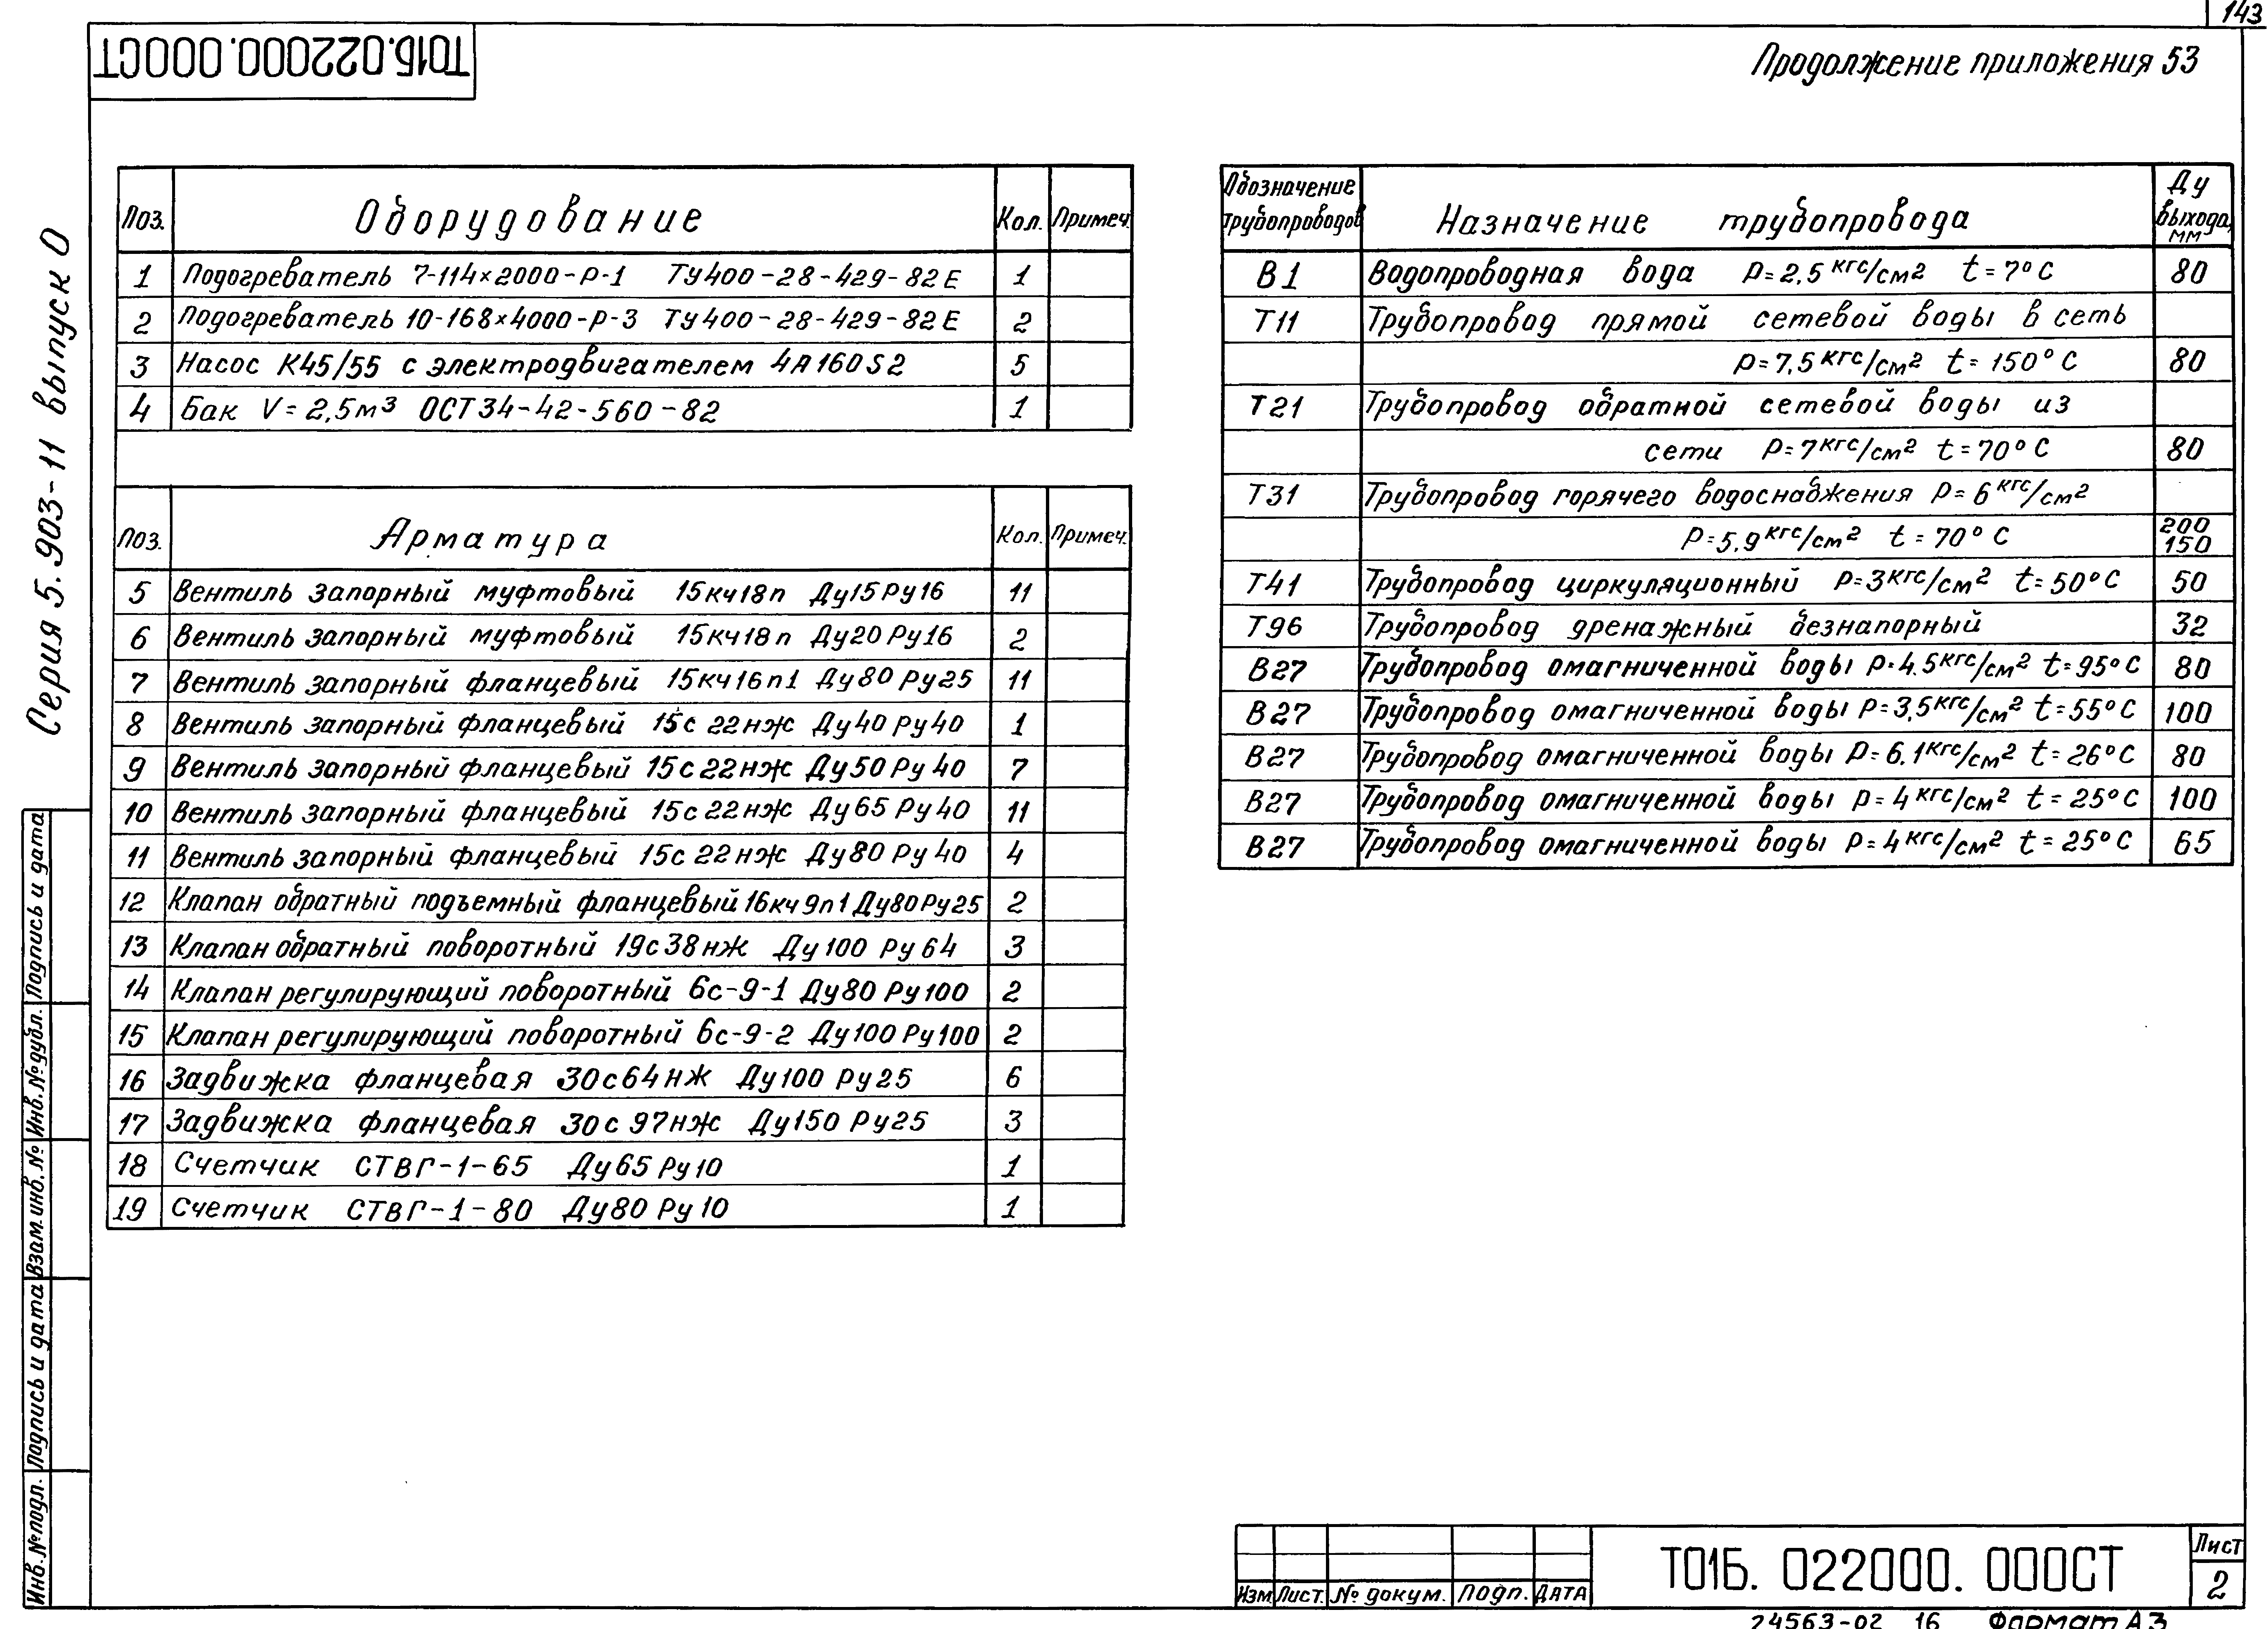 143
Т01Б.022000.000СТ
Продолжение приложения 53
Серия 5.903-11 выпуск 0
Поз. Оборудование Кол. Примеч.
1 Подогреватель 7-114×2000-Р-1 ТУ400-28-429-82Е 1
2 Подогреватель 10-168×4000-Р-3 ТУ400-28-429-82Е 2
3 Насос К45/55 с электродвигателем 4А160S2 5
4 Бак V=2,5м³ ОСТ34-42-560-82 1
Поз. Арматура Кол. Примеч.
5 Вентиль запорный муфтовый 15кч18п Ду15Ру16 11
6 Вентиль запорный муфтовый 15кч18п Ду20Ру16 2
7 Вентиль запорный фланцевый 15кч16п1 Ду80 Ру25 11
8 Вентиль запорный фланцевый 15с22нж Ду40 Ру40 1
9 Вентиль запорный фланцевый 15с22нж Ду50 Ру40 7
10 Вентиль запорный фланцевый 15с22нж Ду65 Ру40 11
11 Вентиль запорный фланцевый 15с22нж Ду80 Ру40 4
12 Клапан обратный подъемный фланцевый 16кч9п1 Ду80Ру25 2
13 Клапан обратный поворотный 19с38нж Ду100 Ру64 3
14 Клапан регулирующий поворотный 6с-9-1 Ду80 Ру100 2
15 Клапан регулирующий поворотный 6с-9-2 Ду100 Ру100 2
16 Задвижка фланцевая 30с64нж Ду100 Ру25 6
17 Задвижка фланцевая 30с97нж Ду150 Ру25 3
18 Счетчик СТВГ-1-65 Ду65 Ру10 1
19 Счетчик СТВГ-1-80 Ду80 Ру10 1
Обозначение трубопроводов Назначение трубопровода Ду выхода, мм
В1 Водопроводная вода Р=2,5кгс/см² t=7°С 80
Т11 Трубопровод прямой сетевой воды в сеть
Р=7,5кгс/см² t=150°С 80
Т21 Трубопровод обратной сетевой воды из
сети Р=7кгс/см² t=70°С 80
Т31 Трубопровод горячего водоснабжения Р=6кгс/см²
Р=5,9кгс/см² t=70°С 200 150
Т41 Трубопровод циркуляционный Р=3кгс/см² t=50°С 50
Т96 Трубопровод дренажный безнапорный 32
В27 Трубопровод омагниченной воды Р=4.5кгс/см² t=95°С 80
В27 Трубопровод омагниченной воды Р=3,5кгс/см² t=55°С 100
В27 Трубопровод омагниченной воды Р=6.1кгс/см² t=26°С 80
В27 Трубопровод омагниченной воды Р=4кгс/см² t=25°С 100
В27 Трубопровод омагниченной воды Р=4кгс/см² t=25°С 65
Инв.№подл. Подпись и дата Взам.инв.№ Инв.№дубл. Подпись и дата
Изм Лист. № докум. Подп. Дата
Т01Б.022000.000СТ
Лист
2
24563-02 16 Формат А3